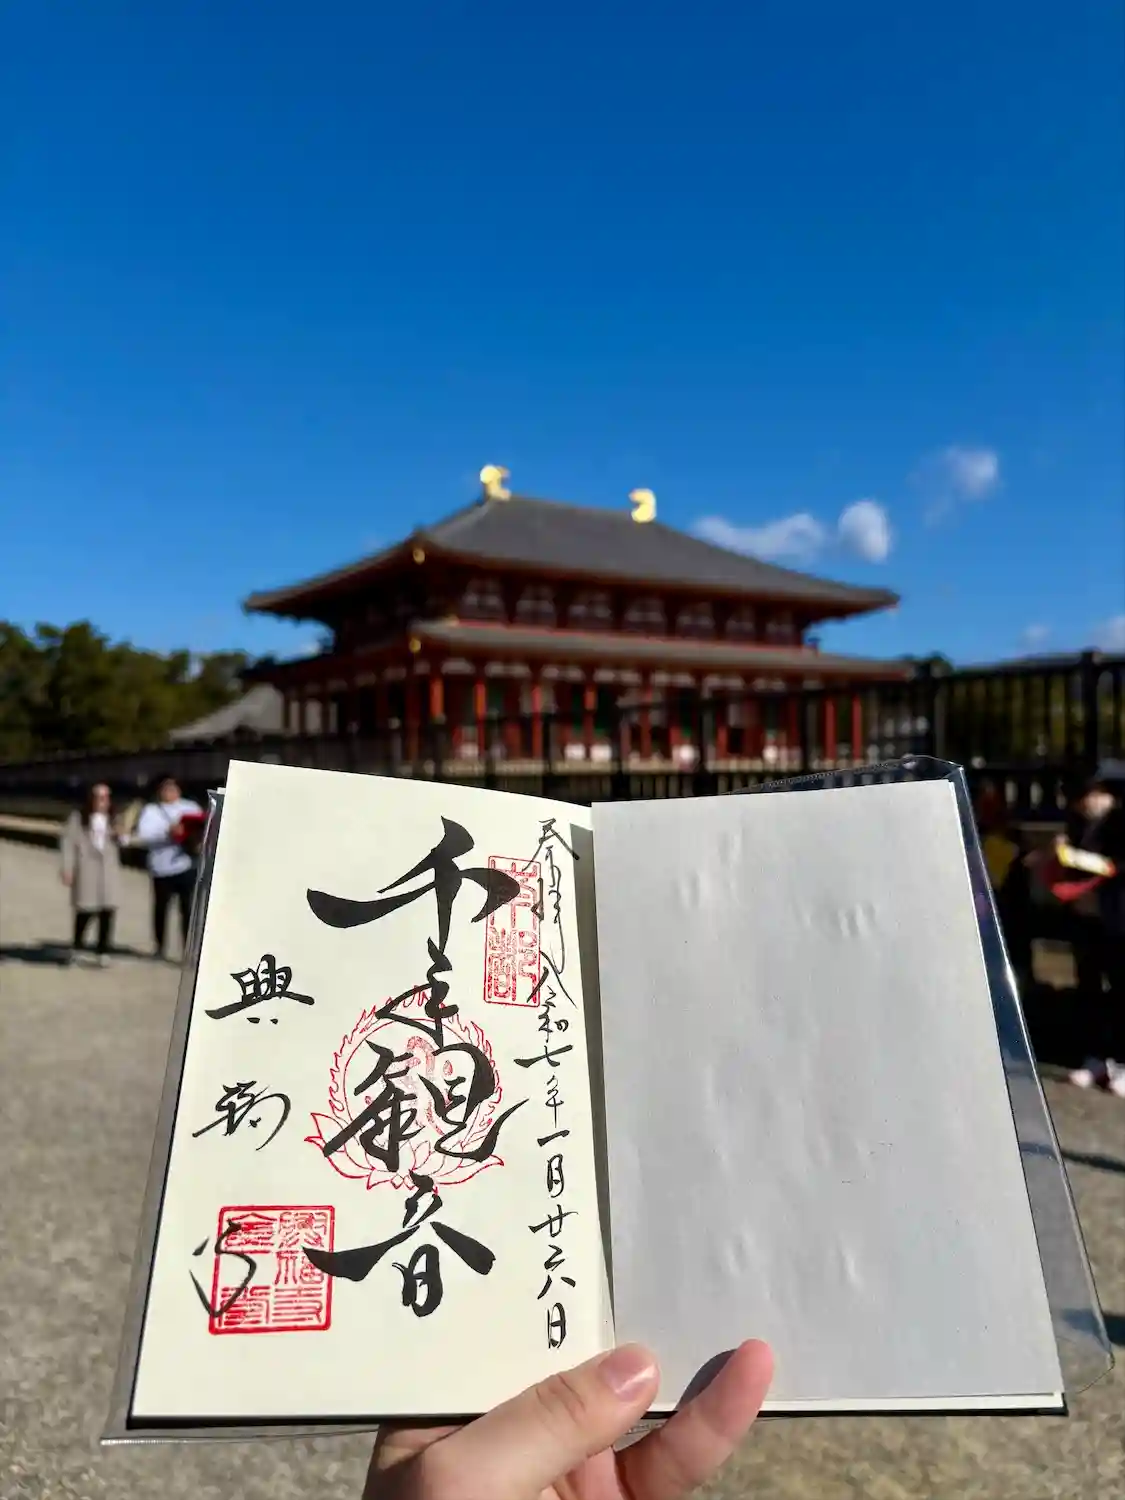 奉拝
令和七年一月廿六日
千手觀音
興福寺
南都
興福寺
金堂